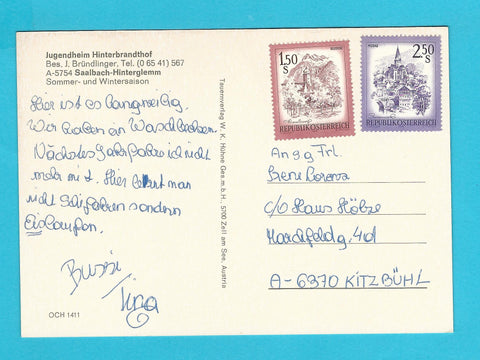 Jugendheim Hinterbrandthof
Bes. J. Bründlinger, Tel. (0 65 41) 567
A-5754 Saalbach-Hinterglemm
Sommer- und Wintersaison
Hier ist es langweilig.
Wir haben an Waschbecken.
Nächstes Jahr fahre ich nicht
mehr mit. Hier lernt man
nicht Schifahren sondern
Eislaufen.
Bussi
Tina
OCH 1411
Tauernverlag W. K. Hühne Ges.m.b.H., 5700 Zell am See, Austria
1.50
S
REPUBLIK ÖSTERREICH
2.50
S
MURAU
REPUBLIK ÖSTERREICH
An g Frl.
c/o Haus Hölze
4d
A-6370 KITZBÜHL